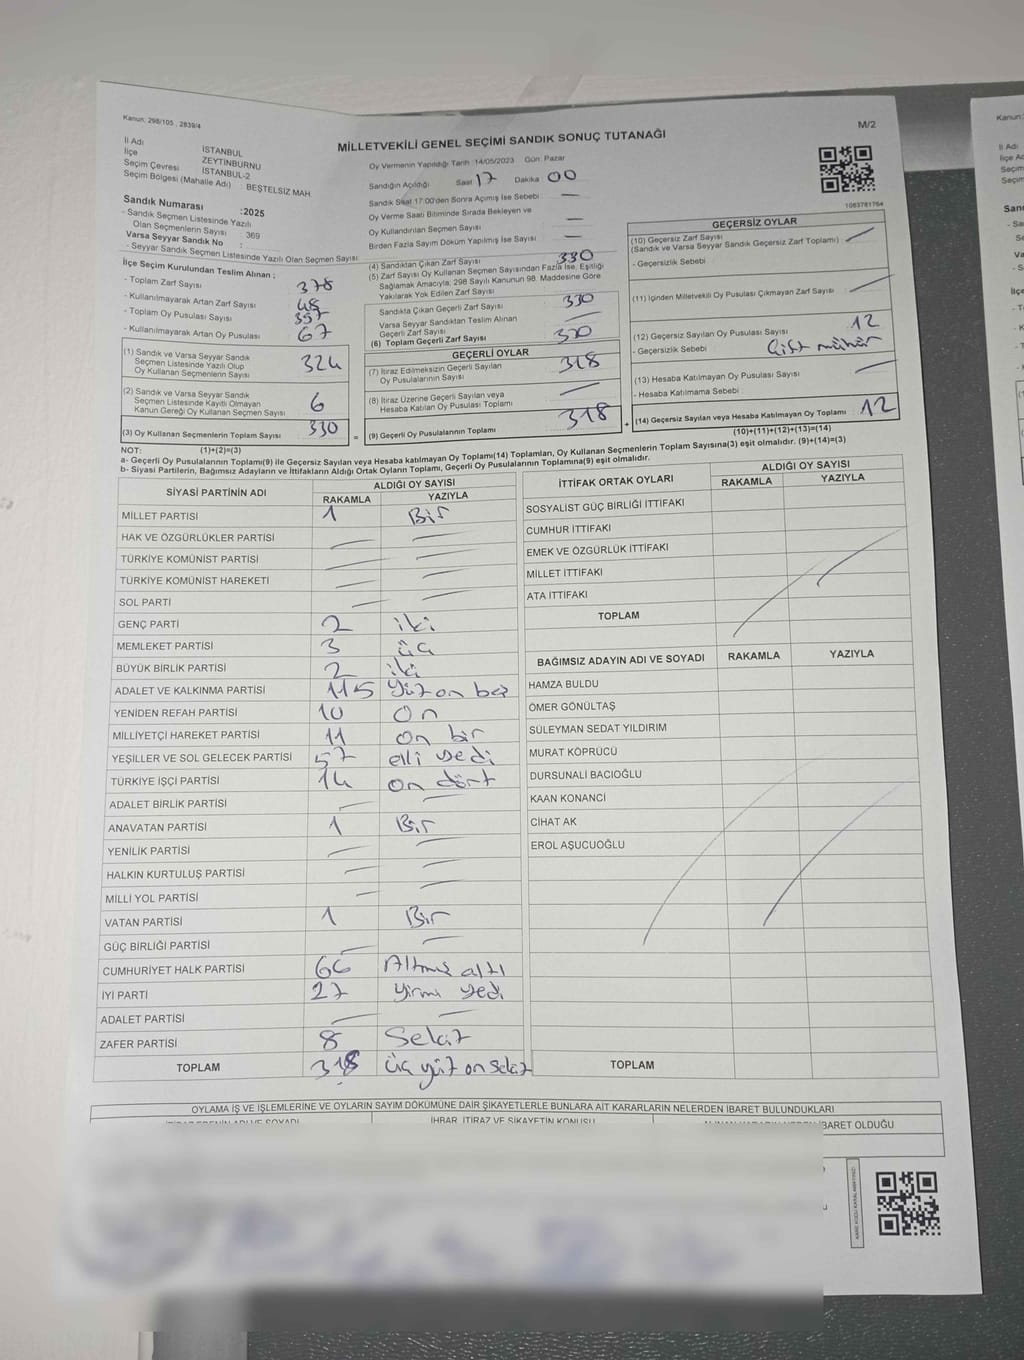 Kanun: 298/105 , 2839/4
M/2
MİLLETVEKİLİ GENEL SEÇİMİ SANDIK SONUÇ TUTANAĞI
İl Adı İSTANBUL
İlçe ZEYTİNBURNU
Seçim Çevresi İSTANBUL-2
Seçim Bölgesi (Mahalle Adı) : BEŞTELSİZ MAH.
Oy Vermenin Yapıldığı Tarih : 14/05/2023 Gün: Pazar
Sandığın Açıldığı Saat 17 Dakika 00
Sandık Saat 17:00'den Sonra Açımış İse Sebebi —
Oy Verme Saati Bitiminde Sırada Bekleyen ve
Oy Kullandırılan Seçmen Sayısı —
Birden Fazla Sayım Döküm Yapılmış İse Sayısı —
1063781764
Sandık Numarası :2025
- Sandık Seçmen Listesinde Yazılı
Olan Seçmenlerin Sayısı : 369
Varsa Seyyar Sandık No :
- Seyyar Sandık Seçmen Listesinde Yazılı Olan Seçmen Sayısı:
İlçe Seçim Kurulundan Teslim Alınan ;
- Toplam Zarf Sayısı 378
- Kullanılmayarak Artan Zarf Sayısı 48
- Toplam Oy Pusulası Sayısı 397
- Kullanılmayarak Artan Oy Pusulası 67
(1) Sandık ve Varsa Seyyar Sandık
Seçmen Listesinde Yazılı Olup
Oy Kullanan Seçmenlerin Sayısı 324
(2) Sandık ve Varsa Seyyar Sandık
Seçmen Listesinde Kayıtlı Olmayan
Kanun Gereği Oy Kullanan Seçmen Sayısı 6
(3) Oy Kullanan Seçmenlerin Toplam Sayısı 330
(4) Sandıktan Çıkan Zarf Sayısı 330
(5) Zarf Sayısı Oy Kullanan Seçmen Sayısından Fazla İse, Eşitliği
Sağlamak Amacıyla; 298 Sayılı Kanunun 98. Maddesine Göre
Yakılarak Yok Edilen Zarf Sayısı
Sandıkta Çıkan Geçerli Zarf Sayısı 330
Varsa Seyyar Sandıktan Teslim Alınan
Geçerli Zarf Sayısı —
(6) Toplam Geçerli Zarf Sayısı 330
GEÇERLİ OYLAR
(7) İtiraz Edilmeksizin Geçerli Sayılan
Oy Pusulalarının Sayısı 318
(8) İtiraz Üzerine Geçerli Sayılan veya
Hesaba Katılan Oy Pusulası Toplamı —
= (9) Geçerli Oy Pusulalarının Toplamı 318
GEÇERSİZ OYLAR
(10) Geçersiz Zarf Sayısı —
(Sandık ve Varsa Seyyar Sandık Geçersiz Zarf Toplamı)
- Geçersizlik Sebebi
(11) İçinden Milletvekili Oy Pusulası Çıkmayan Zarf Sayısı —
(12) Geçersiz Sayılan Oy Pusulası Sayısı 12
- Geçersizlik Sebebi Çift mühür
(13) Hesaba Katılmayan Oy Pusulası Sayısı —
- Hesaba Katılmama Sebebi
+ (14) Geçersiz Sayılan veya Hesaba Katılmayan Oy Toplamı 12
NOT: (1)+(2)=(3)
(10)+(11)+(12)+(13)=(14)
a- Geçerli Oy Pusulalarının Toplamı(9) ile Geçersiz Sayılan veya Hesaba Katılmayan Oy Toplamı(14) Toplamları, Oy Kullanan Seçmenlerin Toplam Sayısına(3) eşit olmalıdır. (9)+(14)=(3)
b- Siyasi Partilerin, Bağımsız Adayların ve İttifakların Aldığı Ortak Oyların Toplamı, Geçerli Oy Pusulalarının Toplamına(9) eşit olmalıdır.
SİYASİ PARTİNİN ADI ALDIĞI OY SAYISI
RAKAMLA YAZIYLA
MİLLET PARTİSİ 1 Bir
HAK VE ÖZGÜRLÜKLER PARTİSİ — —
TÜRKİYE KOMÜNİST PARTİSİ — —
TÜRKİYE KOMÜNİST HAREKETİ — —
SOL PARTİ — —
GENÇ PARTİ 2 iki
MEMLEKET PARTİSİ 3 üç
BÜYÜK BİRLİK PARTİSİ 2 iki
ADALET VE KALKINMA PARTİSİ 115 Yüz on beş
YENİDEN REFAH PARTİSİ 10 On
MİLLİYETÇİ HAREKET PARTİSİ 11 on bir
YEŞİLLER VE SOL GELECEK PARTİSİ 57 elli yedi
TÜRKİYE İŞÇİ PARTİSİ 14 on dört
ADALET BİRLİK PARTİSİ — —
ANAVATAN PARTİSİ 1 Bir
YENİLİK PARTİSİ — —
HALKIN KURTULUŞ PARTİSİ — —
MİLLİ YOL PARTİSİ — —
VATAN PARTİSİ 1 Bir
GÜÇ BİRLİĞİ PARTİSİ — —
CUMHURİYET HALK PARTİSİ 66 Altmış altı
İYİ PARTİ 27 Yirmi yedi
ADALET PARTİSİ — —
ZAFER PARTİSİ 8 Sekiz
TOPLAM 318 üç yüz on sekiz
İTTİFAK ORTAK OYLARI ALDIĞI OY SAYISI
RAKAMLA YAZIYLA
SOSYALİST GÜÇ BİRLİĞİ İTTİFAKI
CUMHUR İTTİFAKI
EMEK VE ÖZGÜRLÜK İTTİFAKI
MİLLET İTTİFAKI
ATA İTTİFAKI
TOPLAM
BAĞIMSIZ ADAYIN ADI VE SOYADI RAKAMLA YAZIYLA
HAMZA BULDU
ÖMER GÖNÜLTAŞ
SÜLEYMAN SEDAT YILDIRIM
MURAT KÖPRÜCÜ
DURSUNALİ BACIOĞLU
KAAN KONANCİ
CİHAT AK
EROL AŞUCUOĞLU
TOPLAM
OYLAMA İŞ VE İŞLEMLERİNE VE OYLARIN SAYIM DÖKÜMÜNE DAİR ŞİKAYETLERLE BUNLARA AİT KARARLARIN NELERDEN İBARET BULUNDUKLARI
İHBAR, İTİRAZ VE ŞİKAYETİN KONUSU
İBARET OLDUĞU